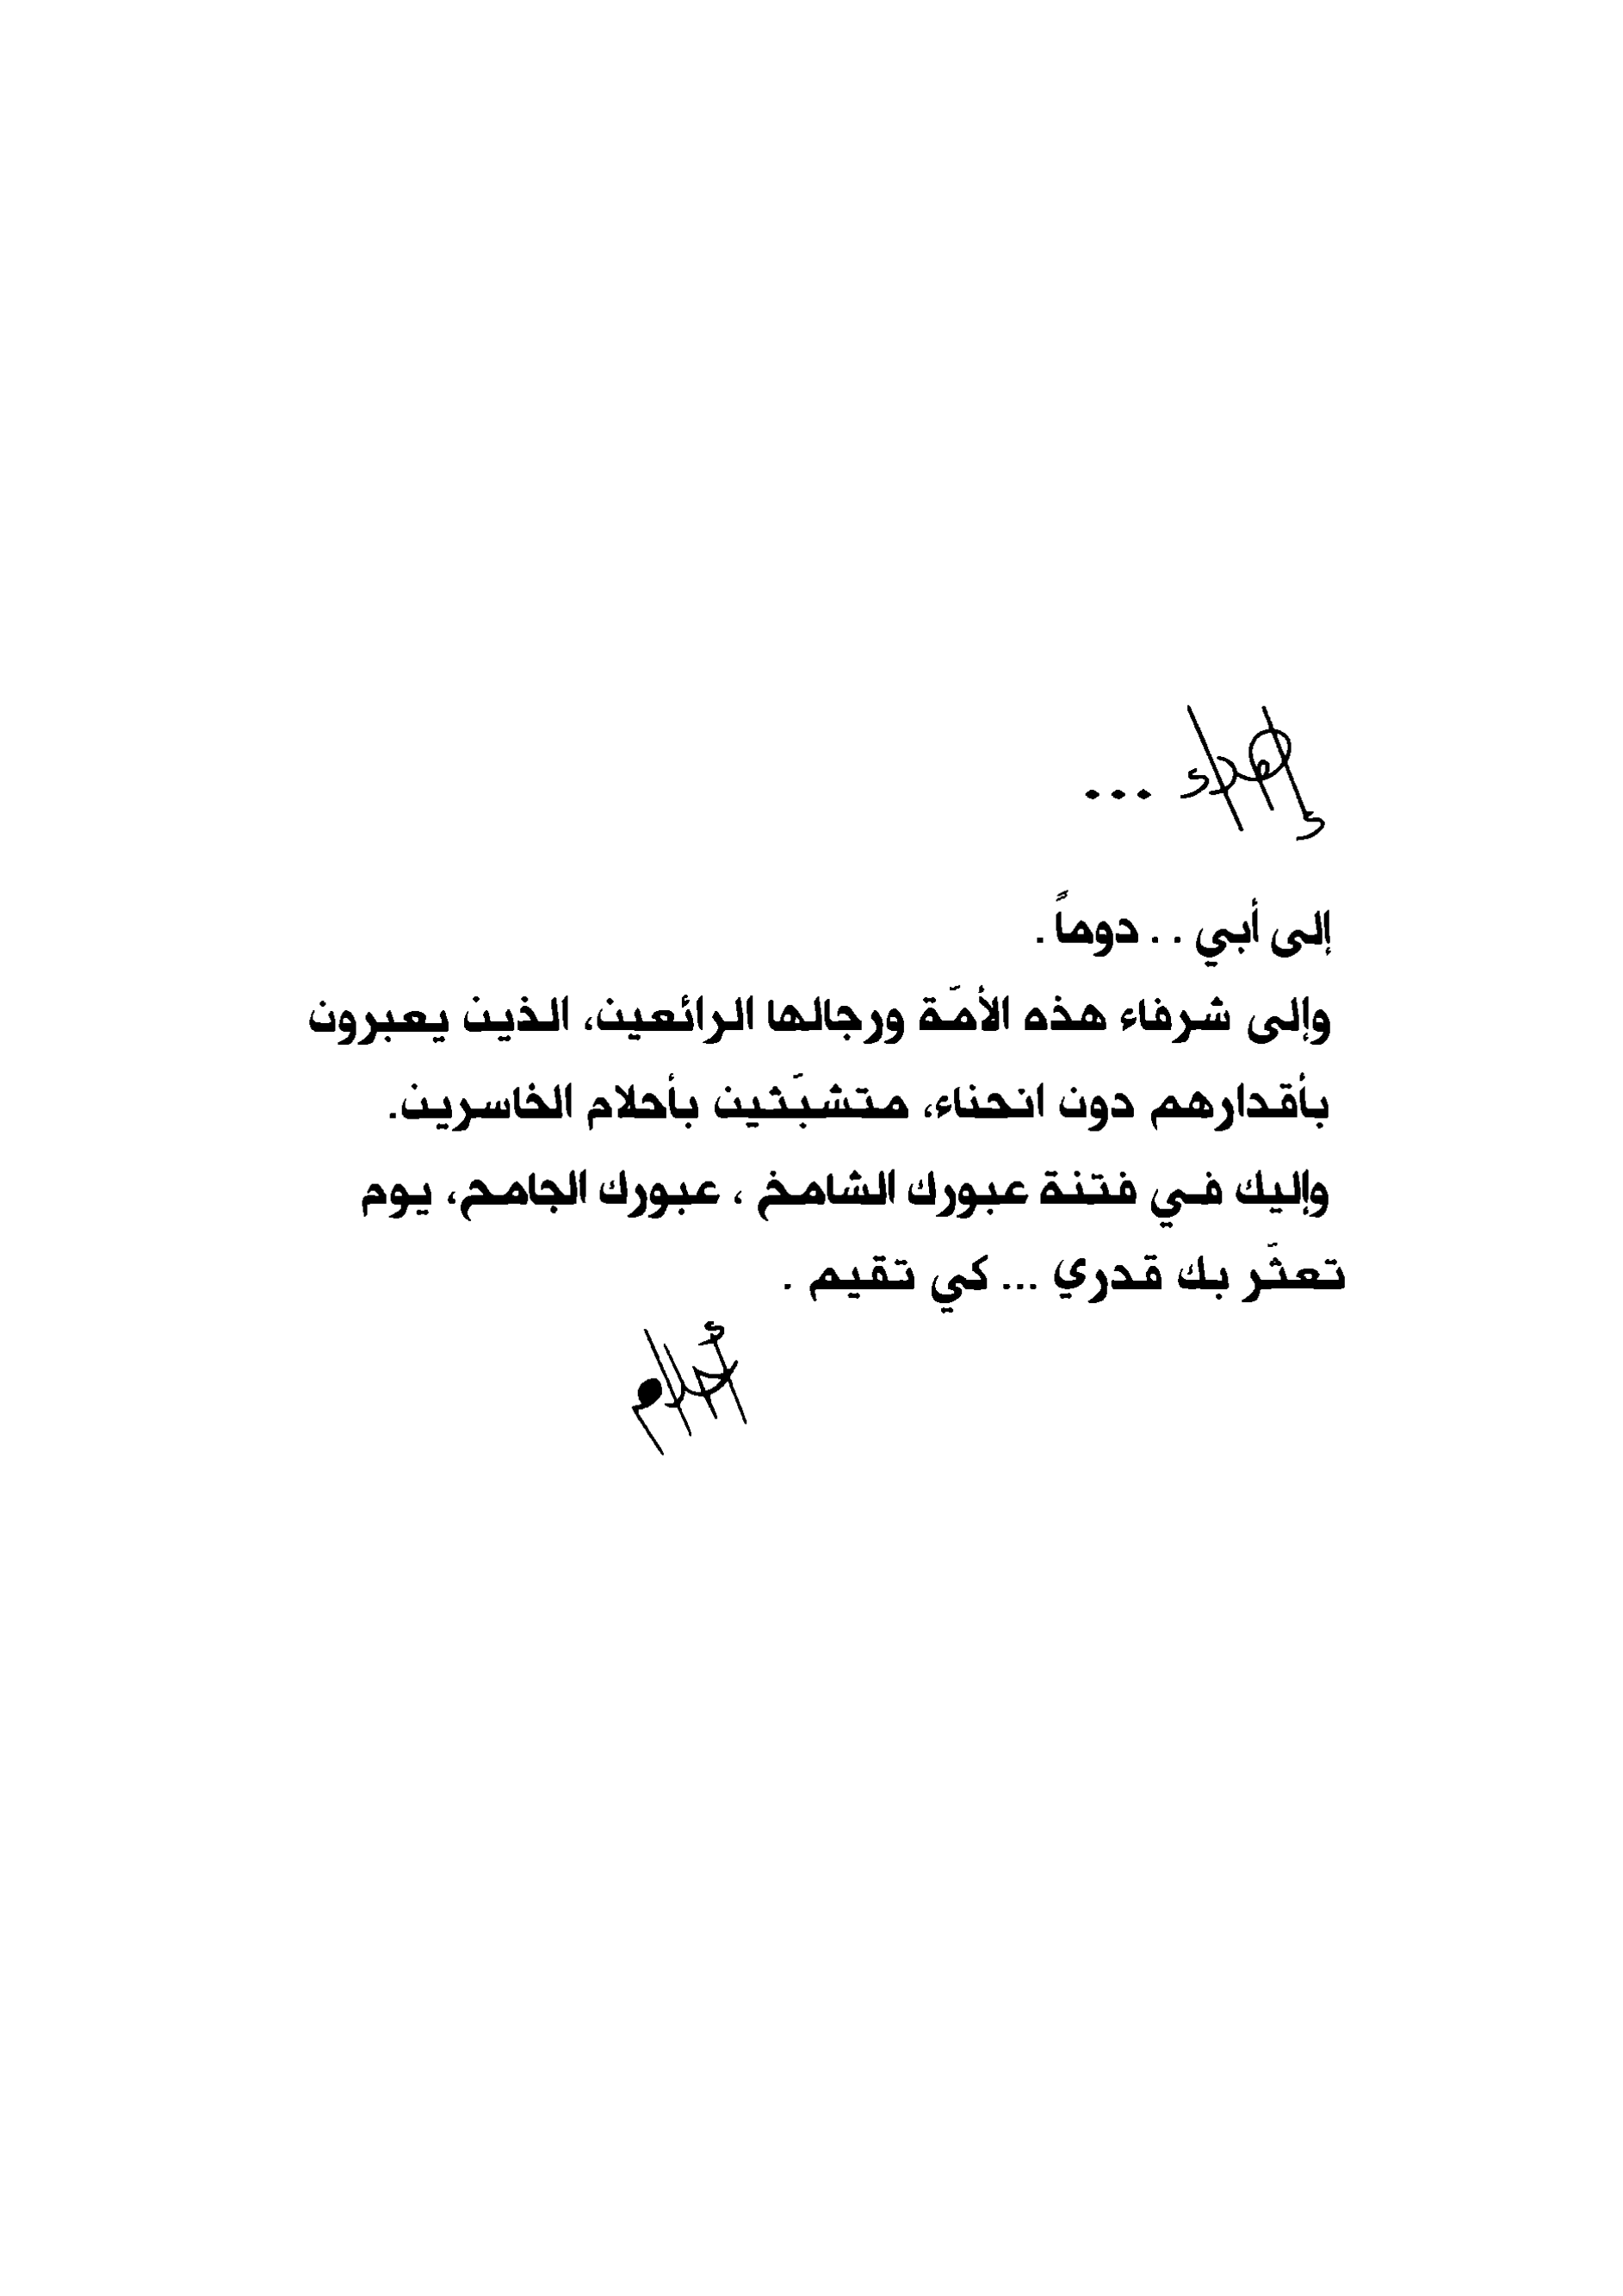 إهداء ...
إلى أبي . . دوماً .
وإلى شرفاء هذه الأمّة ورجالها الرائعين، الذين يعبرون
بأقدارهم دون انحناء، متشبّثين بأحلام الخاسرين.
وإليك في فتنة عبورك الشامخ ، عبورك الجامح، يوم
تعثّر بك قدري ... كي تقيم .
أحلام